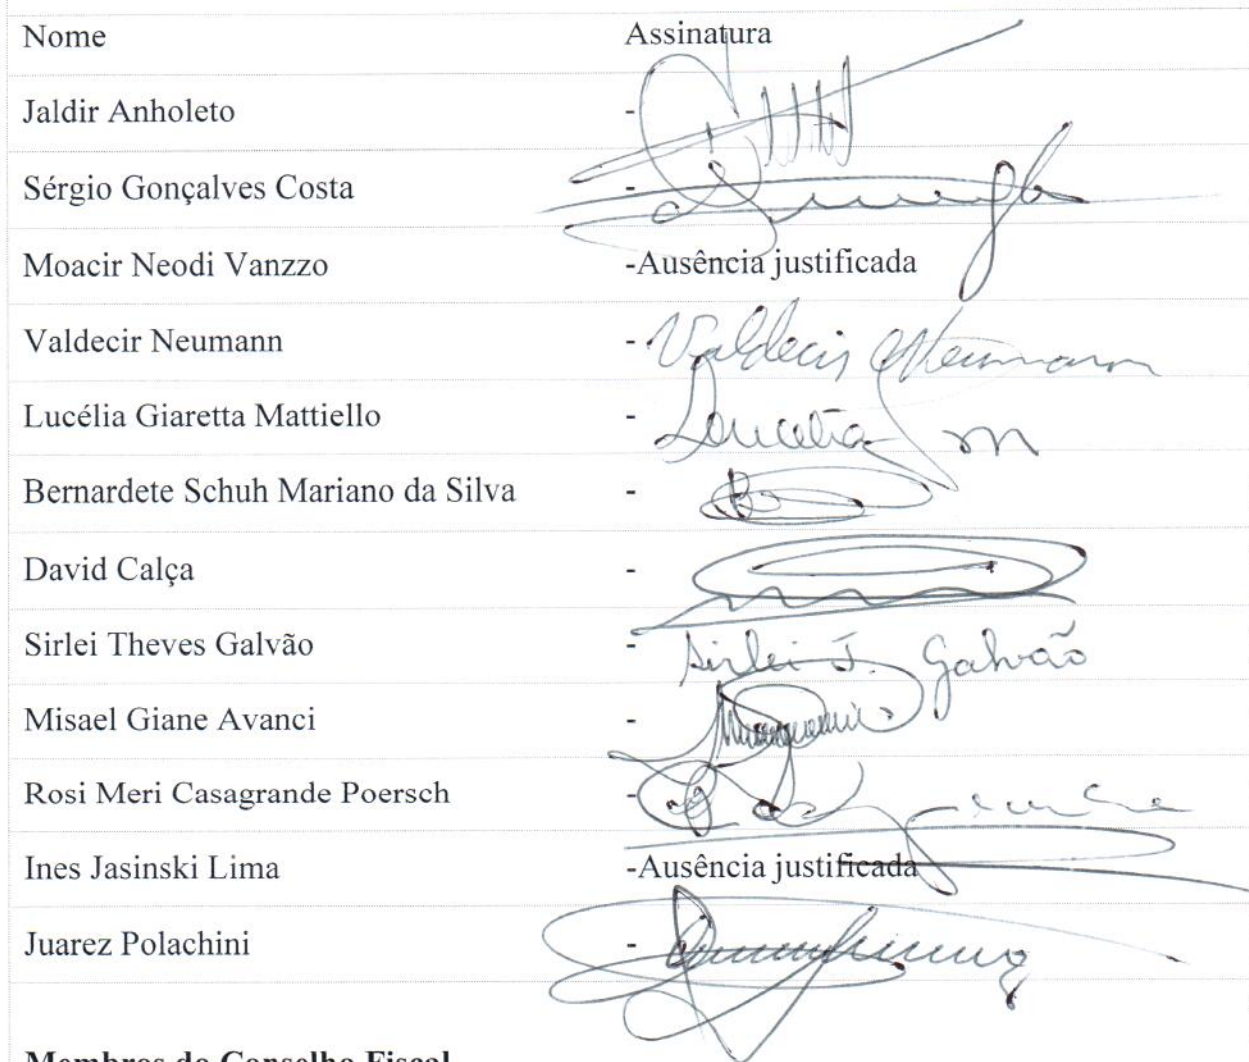 Nome Assinatura
Jaldir Anholeto -
Sérgio Gonçalves Costa -
Moacir Neodi Vanzzo -Ausência justificada
Valdecir Neumann - Valdecir Neumann
Lucélia Giaretta Mattiello - Lucelia M
Bernardete Schuh Mariano da Silva -
David Calça -
Sirlei Theves Galvão - Sirlei T. Galvão
Misael Giane Avanci -
Rosi Meri Casagrande Poersch -
Ines Jasinski Lima -Ausência justificada
Juarez Polachini -
Membros do Conselho Fiscal